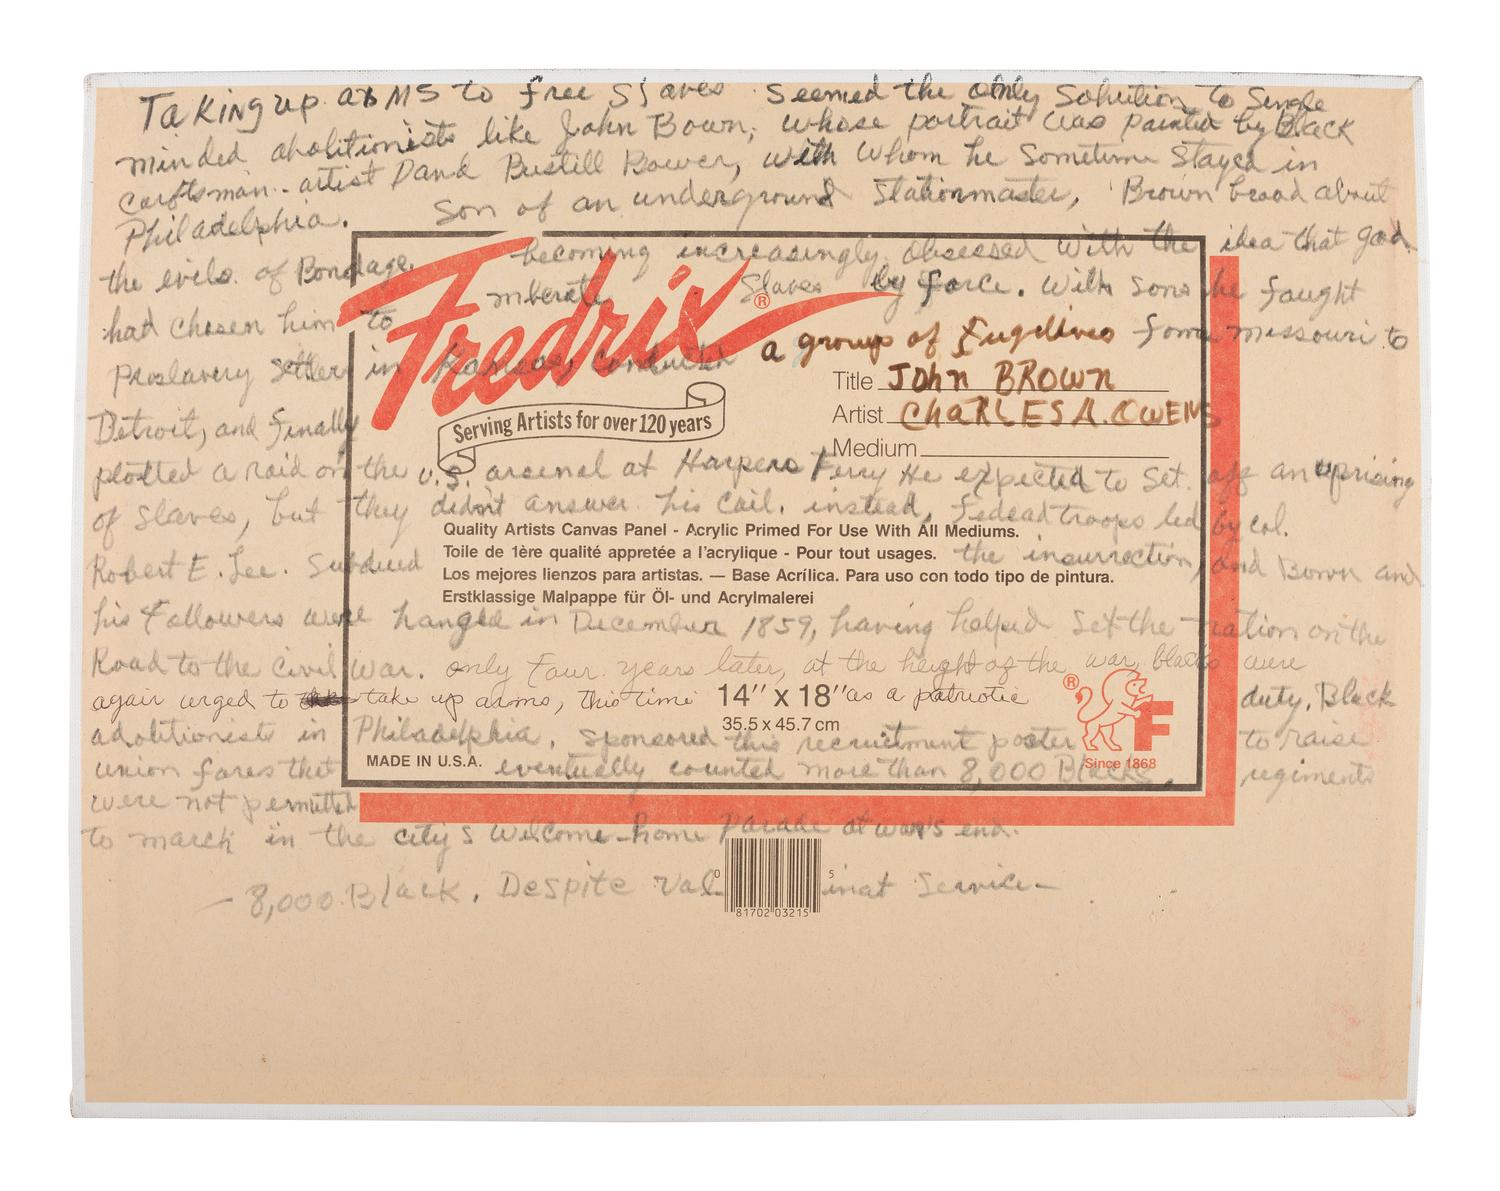 Taking up arms to free Slaves Seemed the only Solution to Single
minded abolitionists like John Bown, whose portrait was painted by Black
craftsman-artist David Bustill Bower, with whom he Sometime Stayed in
Philadelphia. Son of an underground Stationmaster, Brown brood about
the evils of Bondage, becoming increasingly obsessed with the idea that god
had chosen him to Slaves by force. With sons he fought
Proslavery Settler in Kansas, a group of Fugitives from Missouri to
Detroit, and finally
plotted a raid on the U.S. arsenal at Harpers Ferry He expected to Set off an uprising
of Slaves, but they didn't answer his call. instead, Fedeadtroops led by col.
Robert E. Lee. Subdued the insurrection, and Bown and
his Followers were hanged in December 1859, having helped Set the nation on the
Road to the Civil War. only Four years later, at the height of the war, blacks were
again urged to take up arms, this time as a patriotic duty. Black
abolitionists in Philadelphia, sponsored this recruitment poster to raise
union forces that eventually counted more than 8,000 Blacks. regiments
were not permitted
to march in the city's Welcome-home Parade at war's end.
- 8,000 Black, Despite Service-
Fredrix®
Serving Artists for over 120 years
Title John BROWN
Artist CHARLES A. OWENS
Medium
Quality Artists Canvas Panel - Acrylic Primed For Use With All Mediums.
Toile de 1ère qualité appretée a l'acrylique - Pour tout usages.
Los mejores lienzos para artistas. — Base Acrílica. Para uso con todo tipo de pintura.
Erstklassige Malpappe für Öl- und Acrylmalerei
14" x 18"
35.5 x 45.7 cm
MADE IN U.S.A.
®
F
Since 1868
0 81702 03215 5